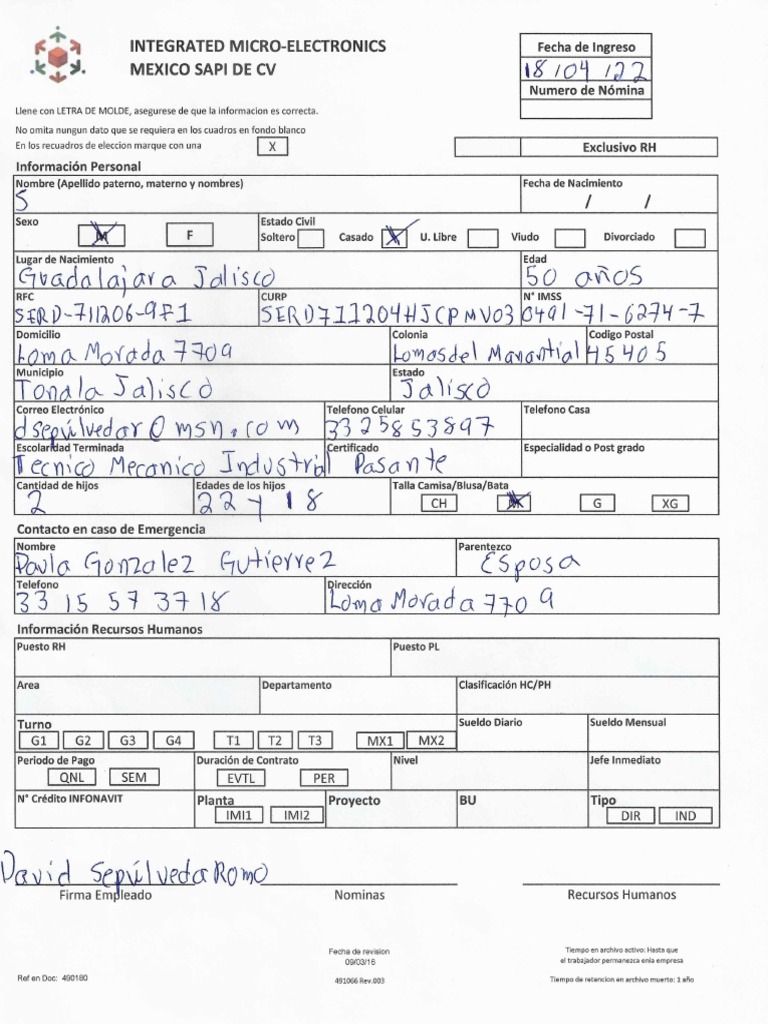 INTEGRATED MICRO-ELECTRONICS
MEXICO SAPI DE CV
Fecha de Ingreso
18/04/22
Numero de Nómina
Llene con LETRA DE MOLDE, asegurese de que la informacion es correcta.
No omita nungun dato que se requiera en los cuadros en fondo blanco
En los recuadros de eleccion marque con una X
Exclusivo RH
Información Personal
Nombre (Apellido paterno, materno y nombres) Fecha de Nacimiento
S / /
Sexo M F Estado Civil Soltero Casado X U. Libre Viudo Divorciado
Lugar de Nacimiento Edad
Guadalajara Jalisco 50 años
RFC CURP N° IMSS
SERD-711206-9F1 SERD711204HJCPMV03 0491-71-6274-7
Domicilio Colonia Codigo Postal
Loma Morada 7709 Lomas del Manantial 45405
Municipio Estado
Tonala Jalisco Jalisco
Correo Electrónico Telefono Celular Telefono Casa
dsepúlvedar@msn.com 3325853897
Escolaridad Terminada Certificado Especialidad o Post grado
Tecnico Mecanico Industrial Pasante
Cantidad de hijos Edades de los hijos Talla Camisa/Blusa/Bata
2 22 y 18 CH M G XG
Contacto en caso de Emergencia
Nombre Parentezco
Paula Gonzalez Gutierrez Esposa
Telefono Dirección
33 15 57 37 18 Loma Morada 7709
Información Recursos Humanos
Puesto RH Puesto PL
Area Departamento Clasificación HC/PH
Turno Sueldo Diario Sueldo Mensual
G1 G2 G3 G4 T1 T2 T3 MX1 MX2
Periodo de Pago Duración de Contrato Nivel Jefe Inmediato
QNL SEM EVTL PER
N° Crédito INFONAVIT Planta Proyecto BU Tipo
IMI1 IMI2 DIR IND
David Sepúlveda Romo
Firma Empleado Nominas Recursos Humanos
Fecha de revision
09/03/16
Tiempo en archivo activo: Hasta que
el trabajador permanezca enla empresa
Ref en Doc: 490180
491066 Rev.003
Tiempo de retencion en archivo muerto: 1 año